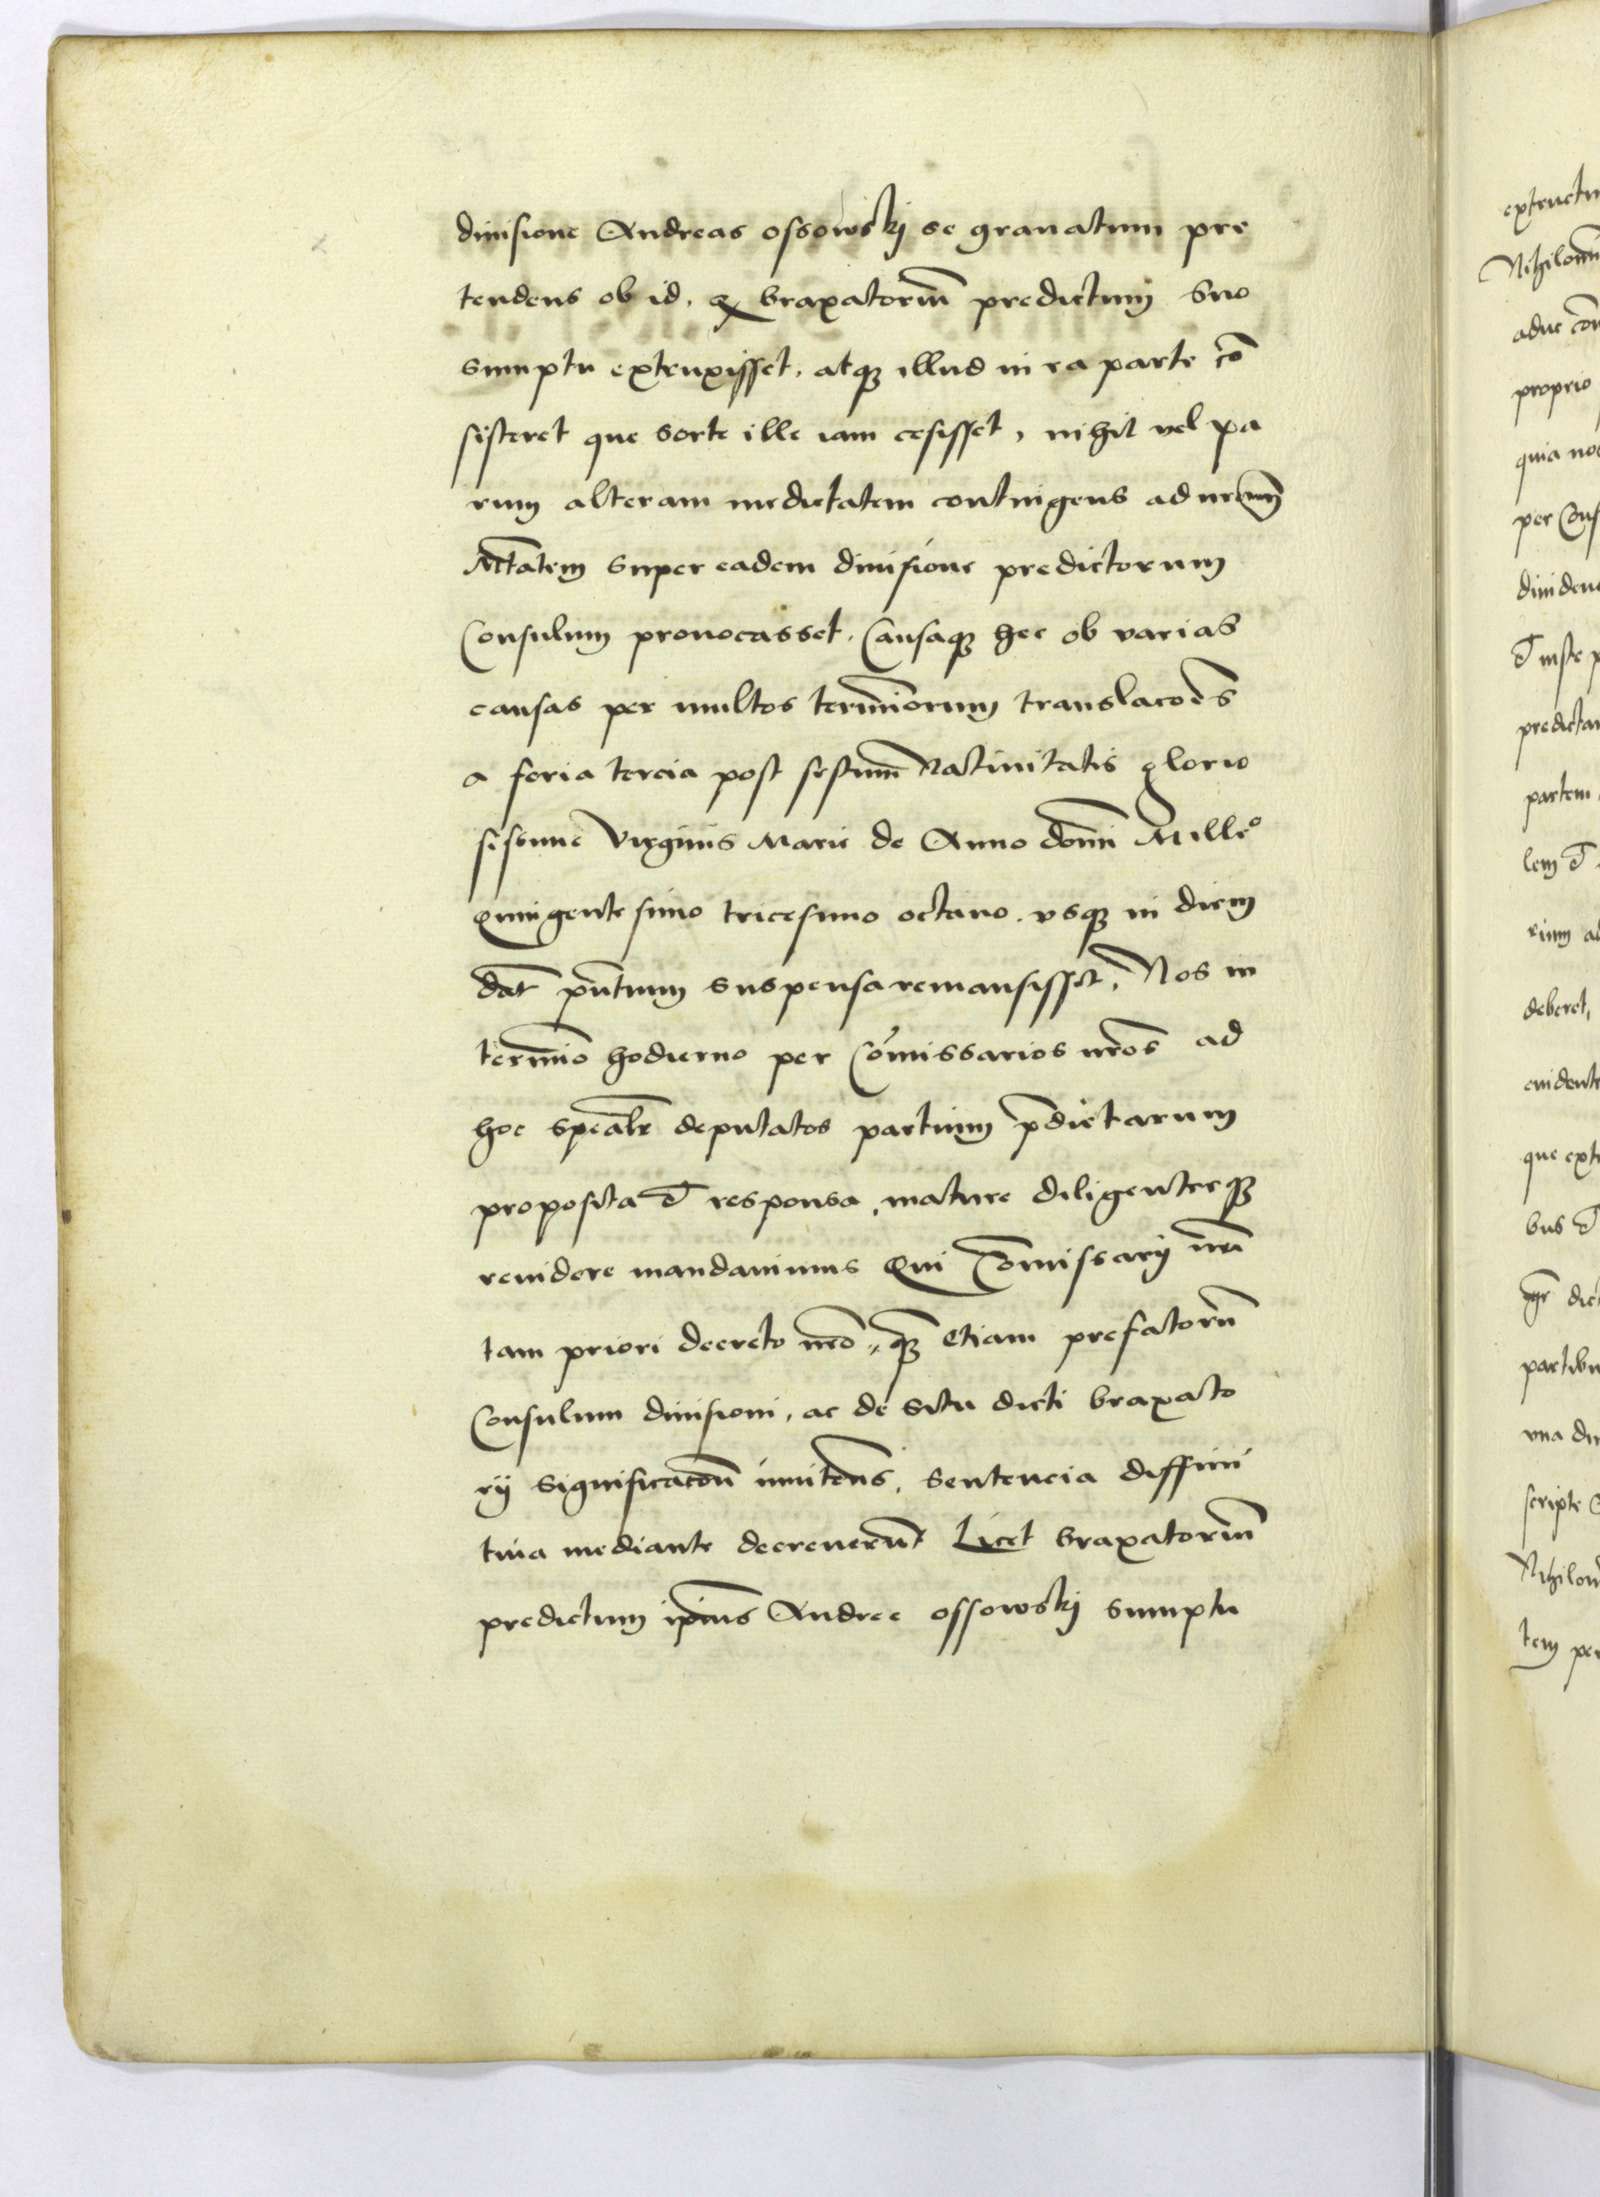 diuisione Andreas ossowskj se grauatum pre
tendens ob id, ꝙ braxatoriũ predictum suo
sumptu extruxisset, atqꝫ illud in ea parte cõ
sisteret que sorte ille iam cesisset, nihil vel pa
rum alteram medietatem contingens ad nr̃am
Mttatem super eadem diuisione predictorum
Consulum prouocasset. Causaqꝫ hec ob varias
causas per multos terminorum translacões
a feria tercia post festum Natiuitatis glorio
sissime Virginis Marie de Anno domi Mille°
Quingentesimo tricesimo octauo. vsqꝫ in diem
dat pñtium suspensa remansisset, Nos in
termio hodierno per Cõmissarios nr̃os ad
hoc speãlr deputatos partium p̃dictarum
proposita et responsa, mature diligenterqꝫ
reuidere mandauimus Qui Cõmissarij nr̃i
tam priori decreto nr̃o, qꝫ etiam prefatorũ
Consulum diuisioni, ac de situ dicti braxato
rij significacõi innitens, sentencia diffini
tiua mediante decreuerũt Licet braxatoriũ
predictum ip̃ius Andree ossowskj sumptu
extructu
Nihilomi
aduc com
proprio
quia no
per Cons
diuiden
et iuste p
predicta
partem
lem et
rium a
deberet,
euidente
que ext
bus et
dic
partibu
vna di
scripte
Nihilom
tem per